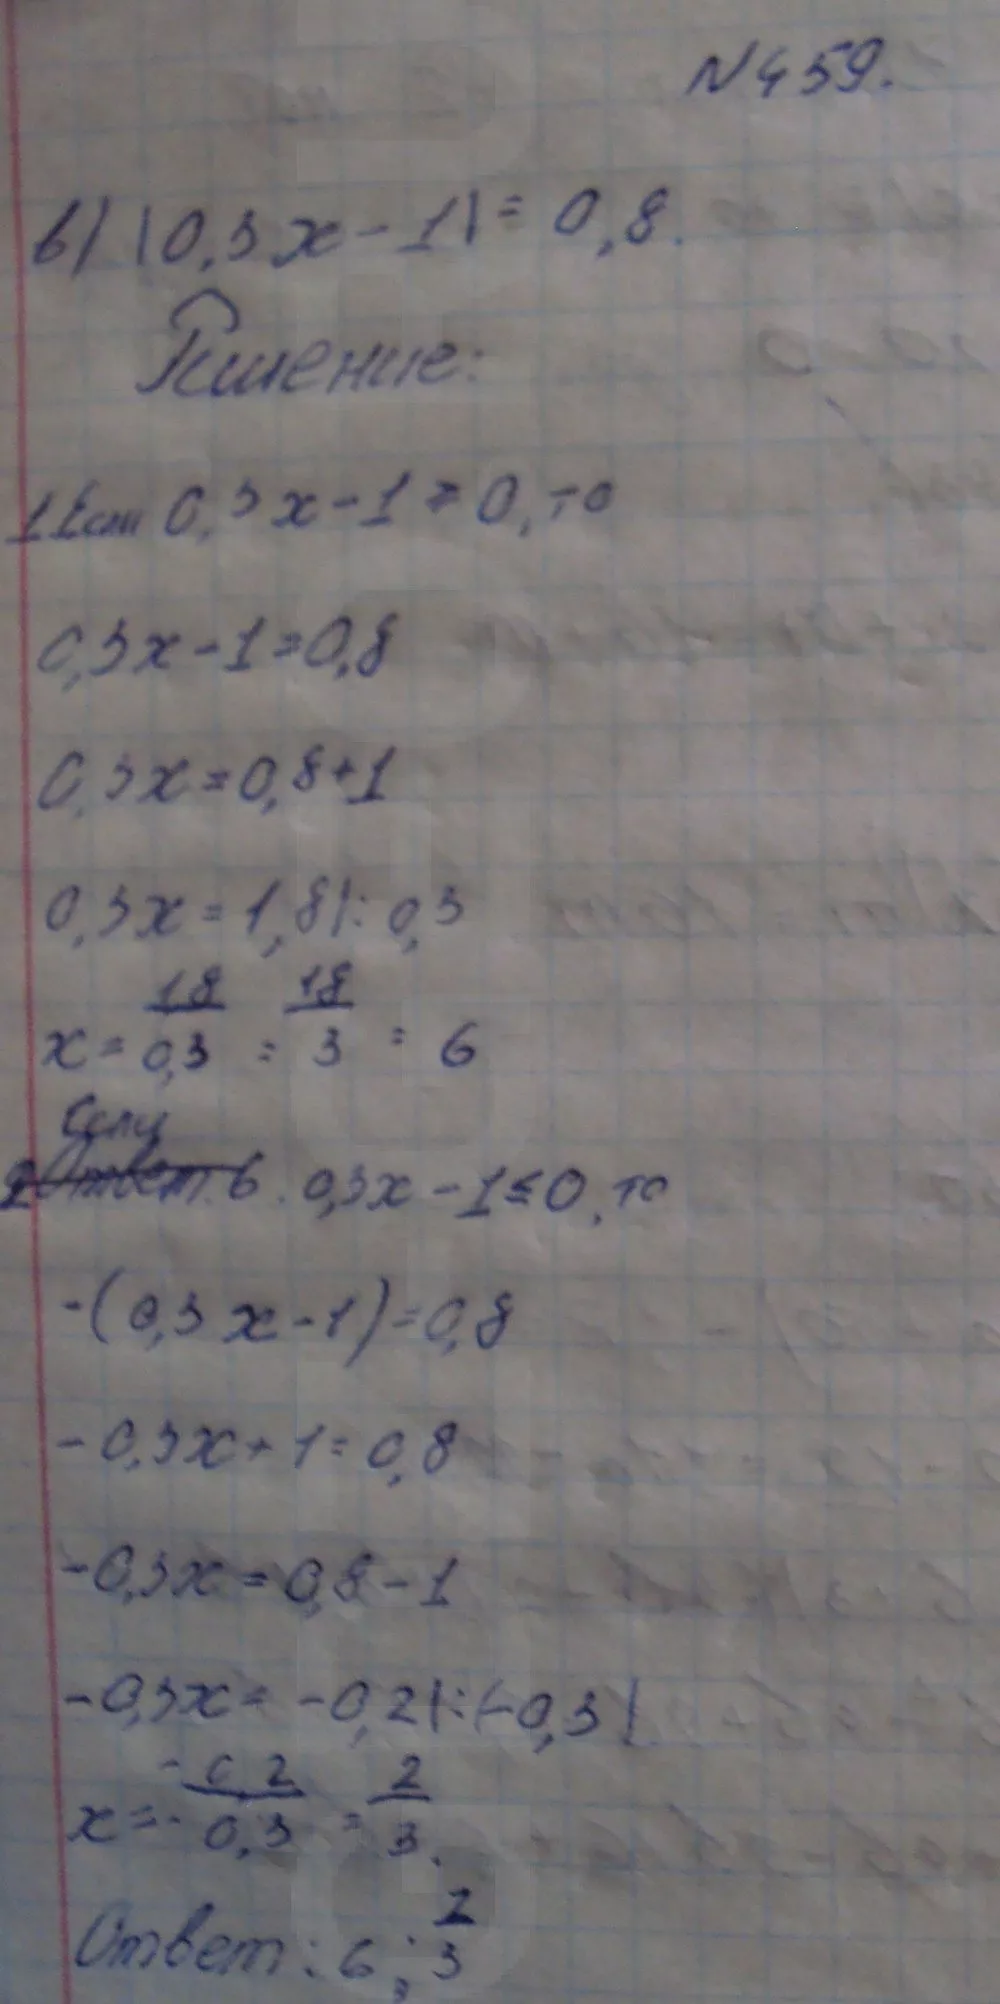 N 459.
в) |0,3x - 1| = 0,8.
Решение:
1 Если 0,3x - 1 ≥ 0, то
0,3x - 1 = 0,8
0,3x = 0,8 + 1
0,3x = 1,8 |: 0,3
x = 18/0,3 = 18/3 = 6
Если
2 Ответ 6. 0,3x - 1 ≤ 0, то
-(0,3x - 1) = 0,8
-0,3x + 1 = 0,8
-0,3x = 0,8 - 1
-0,3x = -0,2 |: (-0,3|
x = - -0,2/0,3 = 2/3.
Ответ: 6; 2/3